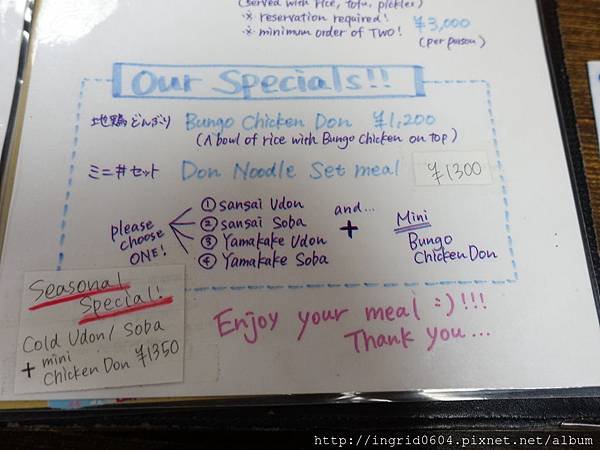 (served with rice, tofu, pickles)
※ reservation required!
※ minimum order of TWO!
¥3,000
(per person)
Our Specials!!
地鶏どんぶり Bungo Chicken Don ¥1,200
(A bowl of rice with Bungo Chicken on top)
ミニ丼セット Don Noodle Set meal ¥1300
please choose ONE!
① sansai Udon
② sansai Soba
③ Yamakake Udon
④ Yamakake Soba
and...
+
Mini
Bungo
Chicken Don
Seasonal
Special!
Cold Udon / Soba
+ mini
Chicken Don ¥1350
Enjoy your meal :)!!!
Thank you...
http://ingrid0604.pixnet.net/album